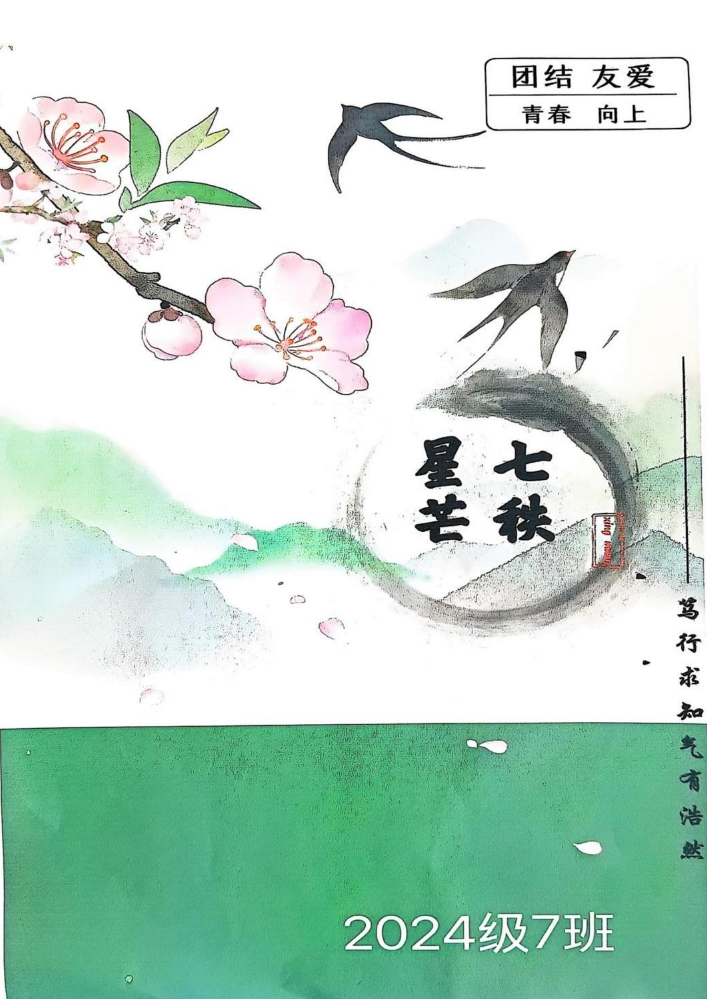 团结 友爱
青春 向上
七秩
星芒
笃行求知气有浩然
2024级7班